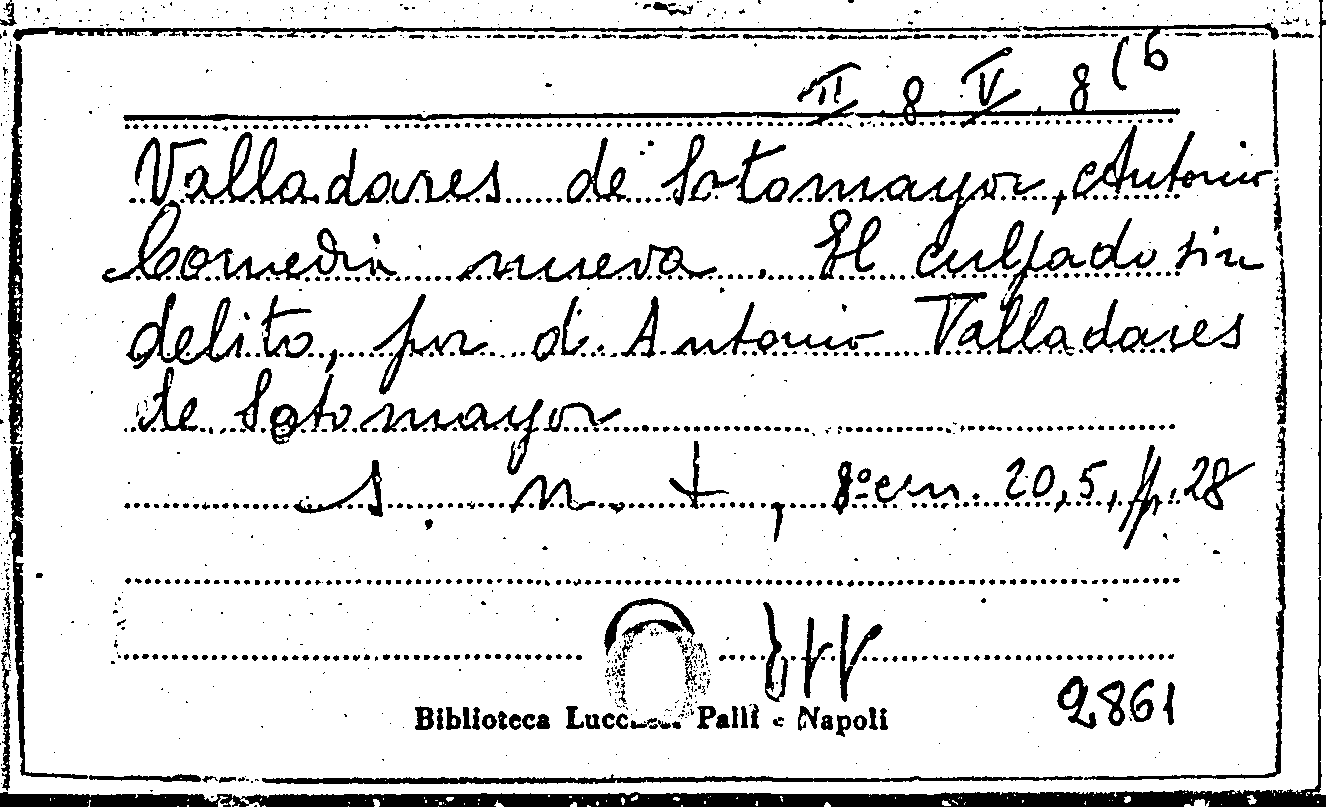 II 8 V. 8 (6
Valladares de Sotomayor, Antonio
Comedia nueva. El culpado sin
delito, por d. Antonio Valladares
de Sotomayor
s. n. t., 8º cm. 20,5, pp. 28
Biblioteca Palli - Napoli
2861